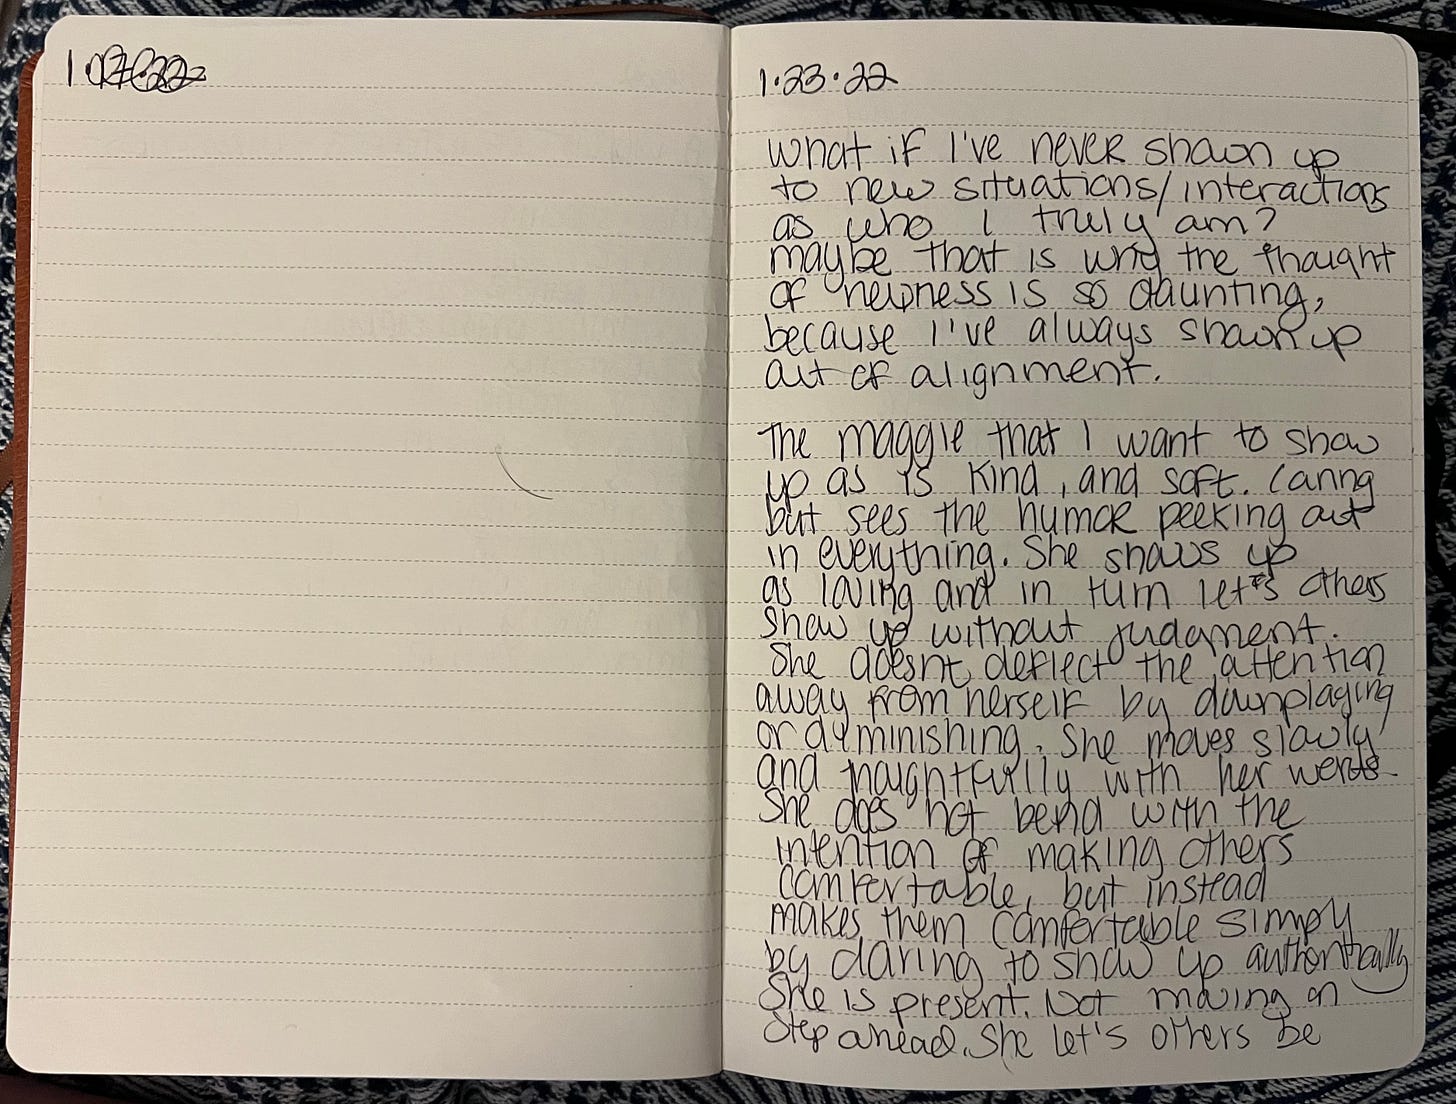 1.
1.23.22
What if I've never shown up
to new situations/interactions
as who I truly am?
maybe that is why the thought
of newness is so daunting,
because I've always shown up
out of alignment.
The maggie that I want to show
up as is kind, and soft. Caring
but sees the humor peeking out
in everything. She shows up
as loving and in turn let's others
show up without judgment.
She doesnt deflect the attention
away from herself by downplaying
or dyminishing. She moves slowly
and thoughtfully with her words
She does not bend with the
intention of making others
comfortable, but instead
makes them comfortable simply
by daring to show up authentically
She is present. Not moving on
step ahead. She let's others be